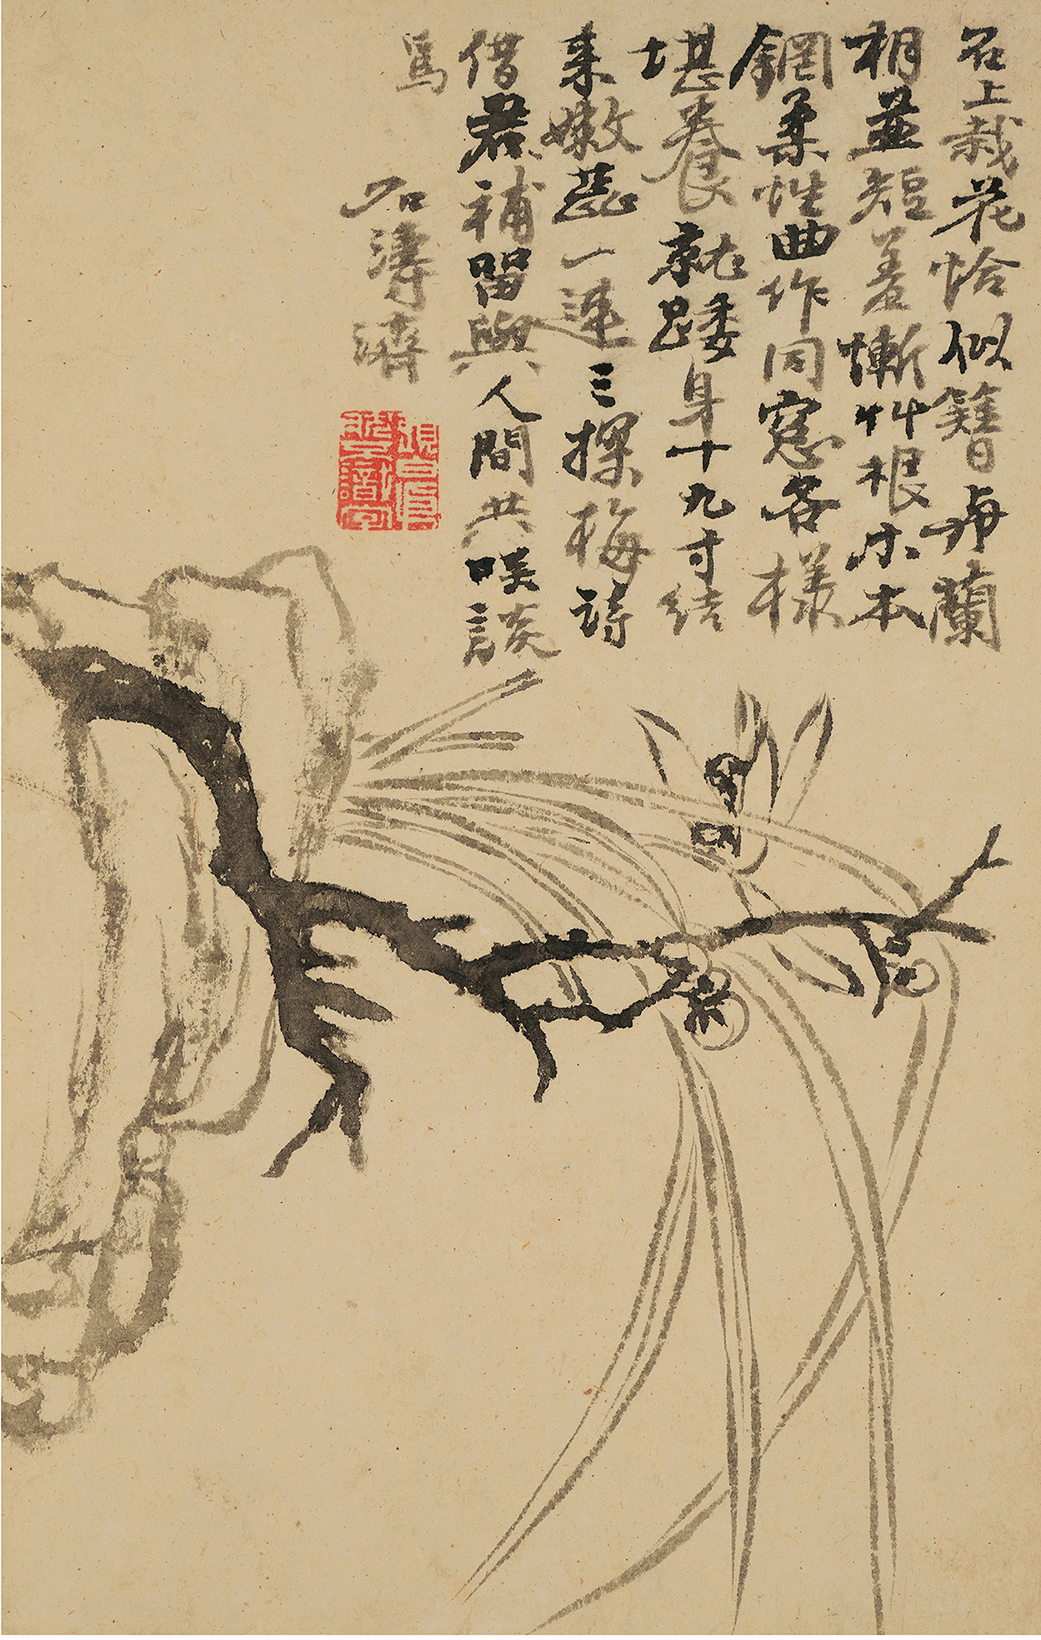 石上栽花恰似簪与蘭
相並短羞慚艸根木本
鋼柔性曲作同窓各樣
堪養就踒身十九寸結
来嫩蕊一連三探梅詩
借君補留與人間共咲談
寫
石濤濟